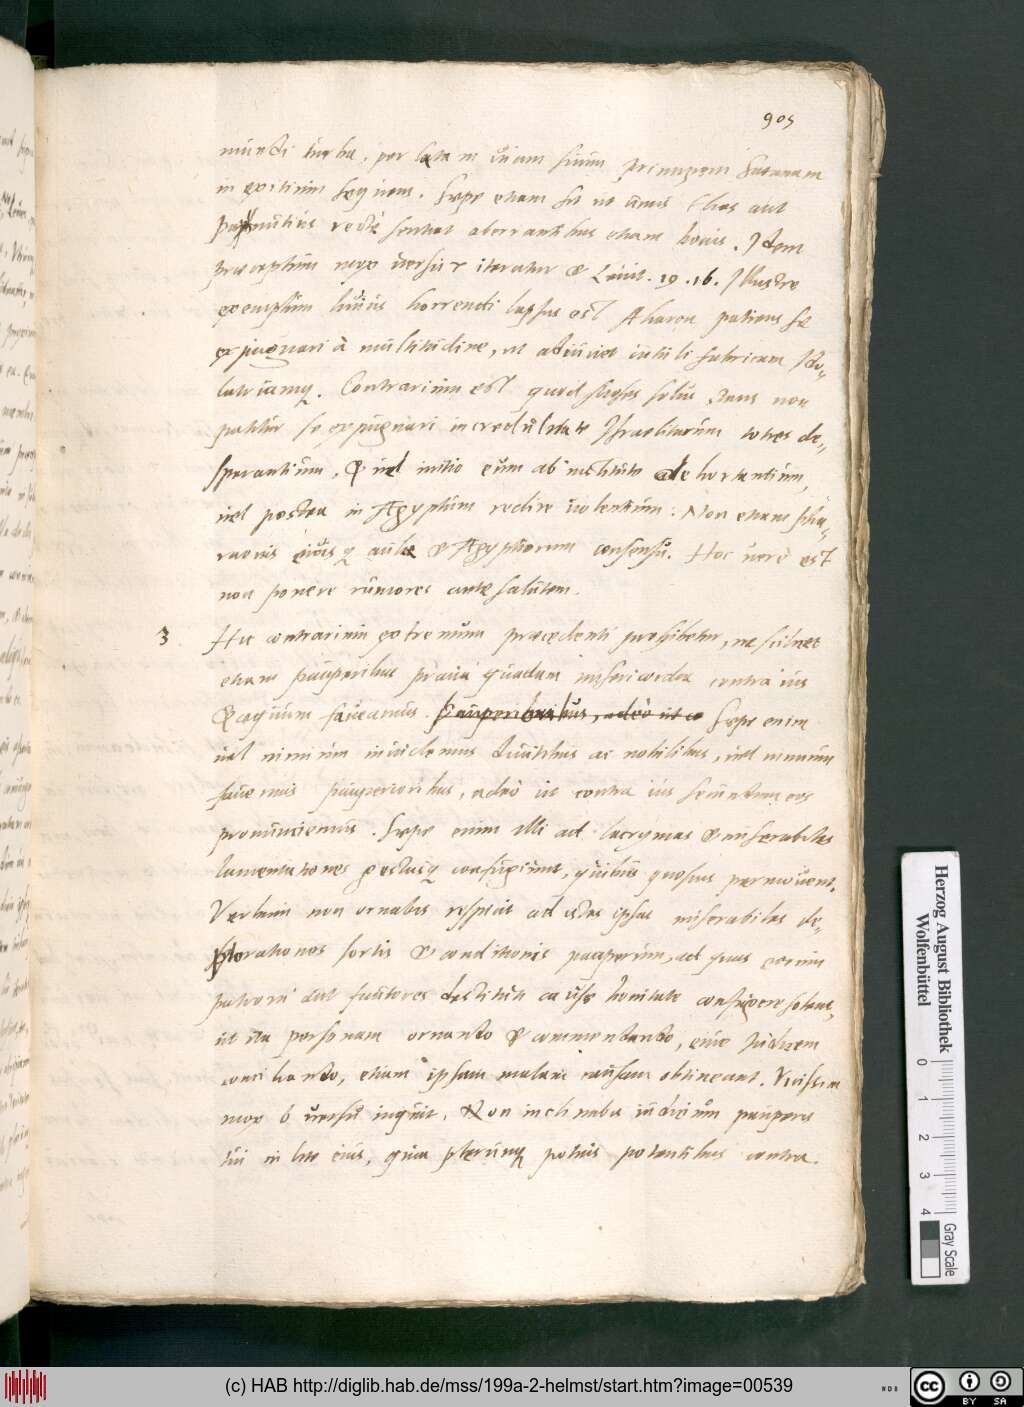 905
mundi turba, per latam viam suum principem Satanam
in exitium sequens. Sæpe etiam fit ut unus Elias aut
Paphnutius rectè sentiat aberrantibus etiam bonis. Idem
præceptum mox versu 7 iteratur & Levit. 19. 16. Illustre
exemplum huius horrendi lapsus est Aharon patiens se
expugnari à multitudine, ut adiuvet vituli fabricam Ido-
latriamq. Contrarium est quod Moses solus Deus non
patitur se expugnari incredulitate Israelitarum toties de-
sperantium, & vel initio eum ab instituto dehortantium,
vel postea in Ægyptum redire volentium: Non etiam Pha-
raonis eiusq aulæ & Ægyptiorum consensu. Hoc verè est
non ponere rumores ante salutem.
3 Hic contrarium extremum præcedenti prohibetur, ne scilicet
etiam pauperibus prava quadam misericordia contra ius
& æquum faveamus. Pauperibus, adeò ut co Sæpe enim
vel nimium invidemus divitibus ac nobilibus, vel nimium
favemus pauperioribus, adeò ut contra ius sententiam eos
pronunciemus. Sæpe enim illi ad lacrymas & miserabiles
lamentationes gestusq confugiunt, quibus quosvis permovent.
Verbum non ornabis respicit ad istas ipsas miserabiles de-
plorationes sortis & conditionis pauperum, ad quas eorum
patroni aut fautores destituti causæ bonitate confugere solent,
ut ita personam ornando & commendando, eiusque iudicem
conciliando, etiam ipsam malam causam obtineant. Vicissim
mox 6 versu inquit, Non inclinabis iudicium pauperis
tui in lite eius, quia plerunq potius potentibus contra.
Herzog August Bibliothek
Wolfenbüttel
0 1 2 3 4
Gray Scale
(c) HAB http://diglib.hab.de/mss/199a-2-helmst/start.htm?image=00539
cc BY SA